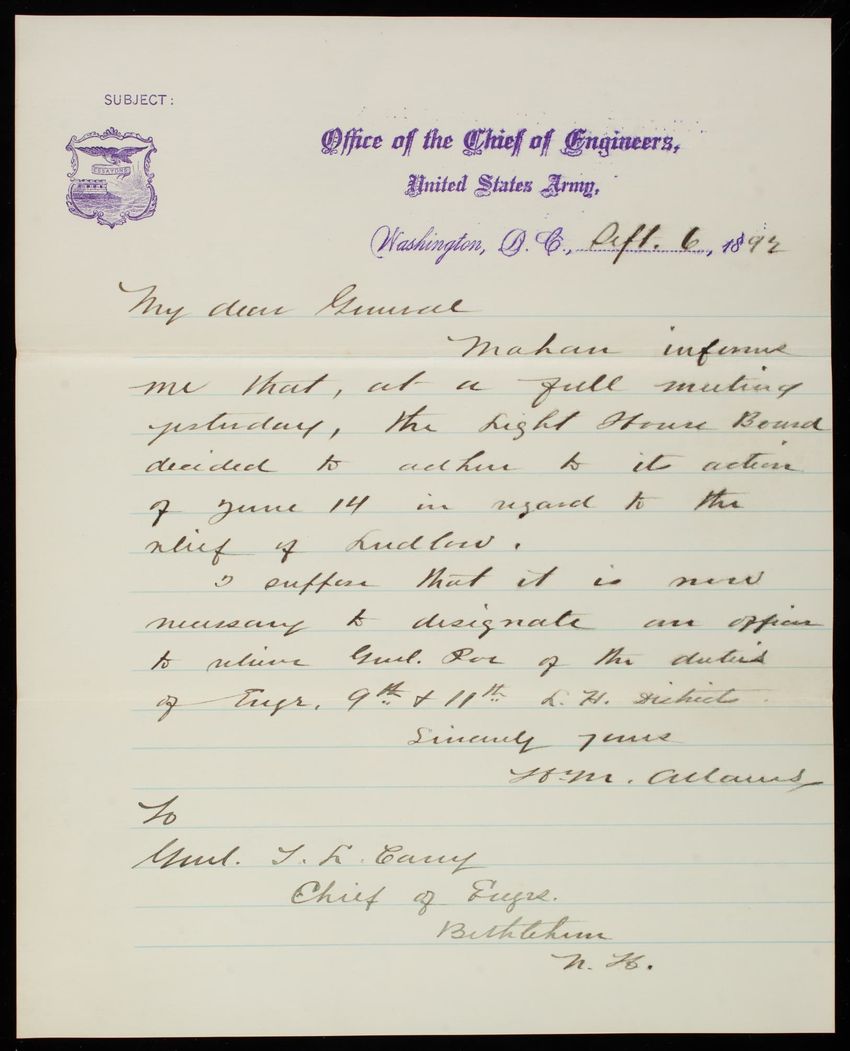 SUBJECT:
ESSAYONS
Office of the Chief of Engineers,
United States Army,
Washington, D. C., Sept. 6, 1892
My dear General
Mahan informs
me that, at a full meeting
yesterday, the Light House Board
decided to adhere to its action
of June 14 in regard to the
relief of Ludlow.
I suppose that it is now
necessary to designate an officer
to relieve Genl. Poe of the duties
of Engr. 9th & 11th L. H. Districts.
Sincerely yours
H. M. Adams
To
Genl. T. L. Casey
Chief of Engrs.
Bethlehem
N. H.